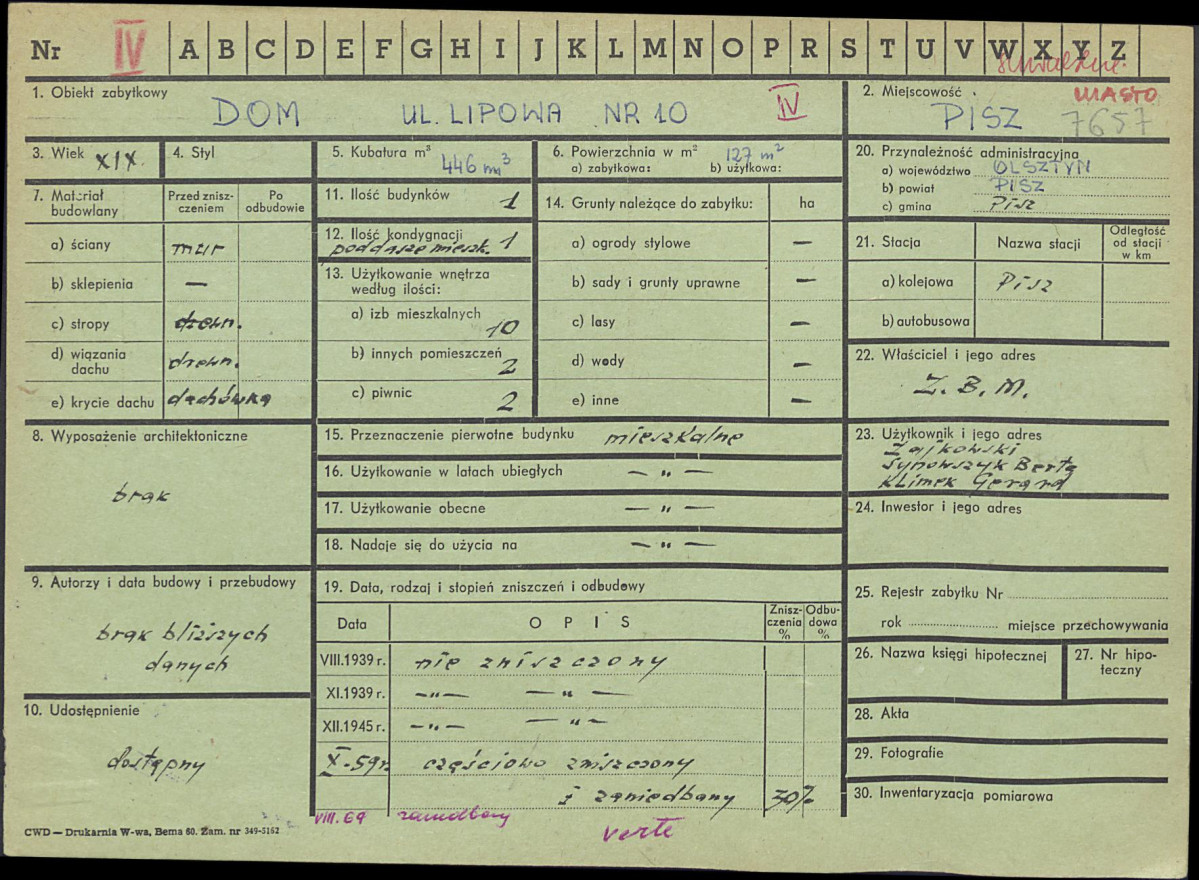 Nr IV A B C D E F G H I J K L M N O P R S T U V W X Y Z
1. Obiekt zabytkowy
DOM UL. LIPOWA NR 10 IV
2. Miejscowość
MIASTO
PISZ 7657
3. Wiek XIX
4. Styl
5. Kubatura m³
446 m³
6. Powierzchnia w m²
127 m²
a) zabytkowa: b) użytkowa:
7. Materiał budowlany
Przed znisz-
czeniem
Po
odbudowie
a) ściany mur
b) sklepienia —
c) stropy drewn.
d) wiązania
dachu drewn.
e) krycie dachu dachówka
8. Wyposażenie architektoniczne
brak
9. Autorzy i data budowy i przebudowy
brak bliższych
danych
10. Udostępnienie
dostępny
11. Ilość budynków 1
12. Ilość kondygnacji 1
poddasze mieszk.
13. Użytkowanie wnętrza
według ilości:
a) izb mieszkalnych 10
b) innych pomieszczeń 2
c) piwnic 2
14. Grunty należące do zabytku: ha
a) ogrody stylowe —
b) sady i grunty uprawne —
c) lasy —
d) wody —
e) inne —
15. Przeznaczenie pierwotne budynku mieszkalne
16. Użytkowanie w latach ubiegłych — „ —
17. Użytkowanie obecne — „ —
18. Nadaje się do użycia na — „ —
19. Data, rodzaj i stopień zniszczeń i odbudowy
Data
OPIS
Znisz-
czenia
%
Odbu-
dowa
%
VIII.1939 r. nie zniszczony
XI.1939 r. — „ — — „ —
XII.1945 r. — „ — — „ —
X-59r. częściowo zniszczony
i zaniedbany 30%
VIII.69 zaniedbany
verte
20. Przynależność administracyjna
a) województwo OLSZTYN
b) powiat PISZ
c) gmina Pisz
21. Stacja
Nazwa stacji
Odległość
od stacji
w km
a) kolejowa Pisz
b) autobusowa
22. Właściciel i jego adres
Z. B. M.
23. Użytkownik i jego adres
Zajkowski
Synowszyk Berta
Klimek Gerard
24. Inwestor i jego adres
25. Rejestr zabytku Nr
rok miejsce przechowywania
26. Nazwa księgi hipotecznej
27. Nr hipo-
teczny
28. Akta
29. Fotografie
30. Inwentaryzacja pomiarowa
CWD — Drukarnia W-wa, Bema 60. Zam. nr 349-5162